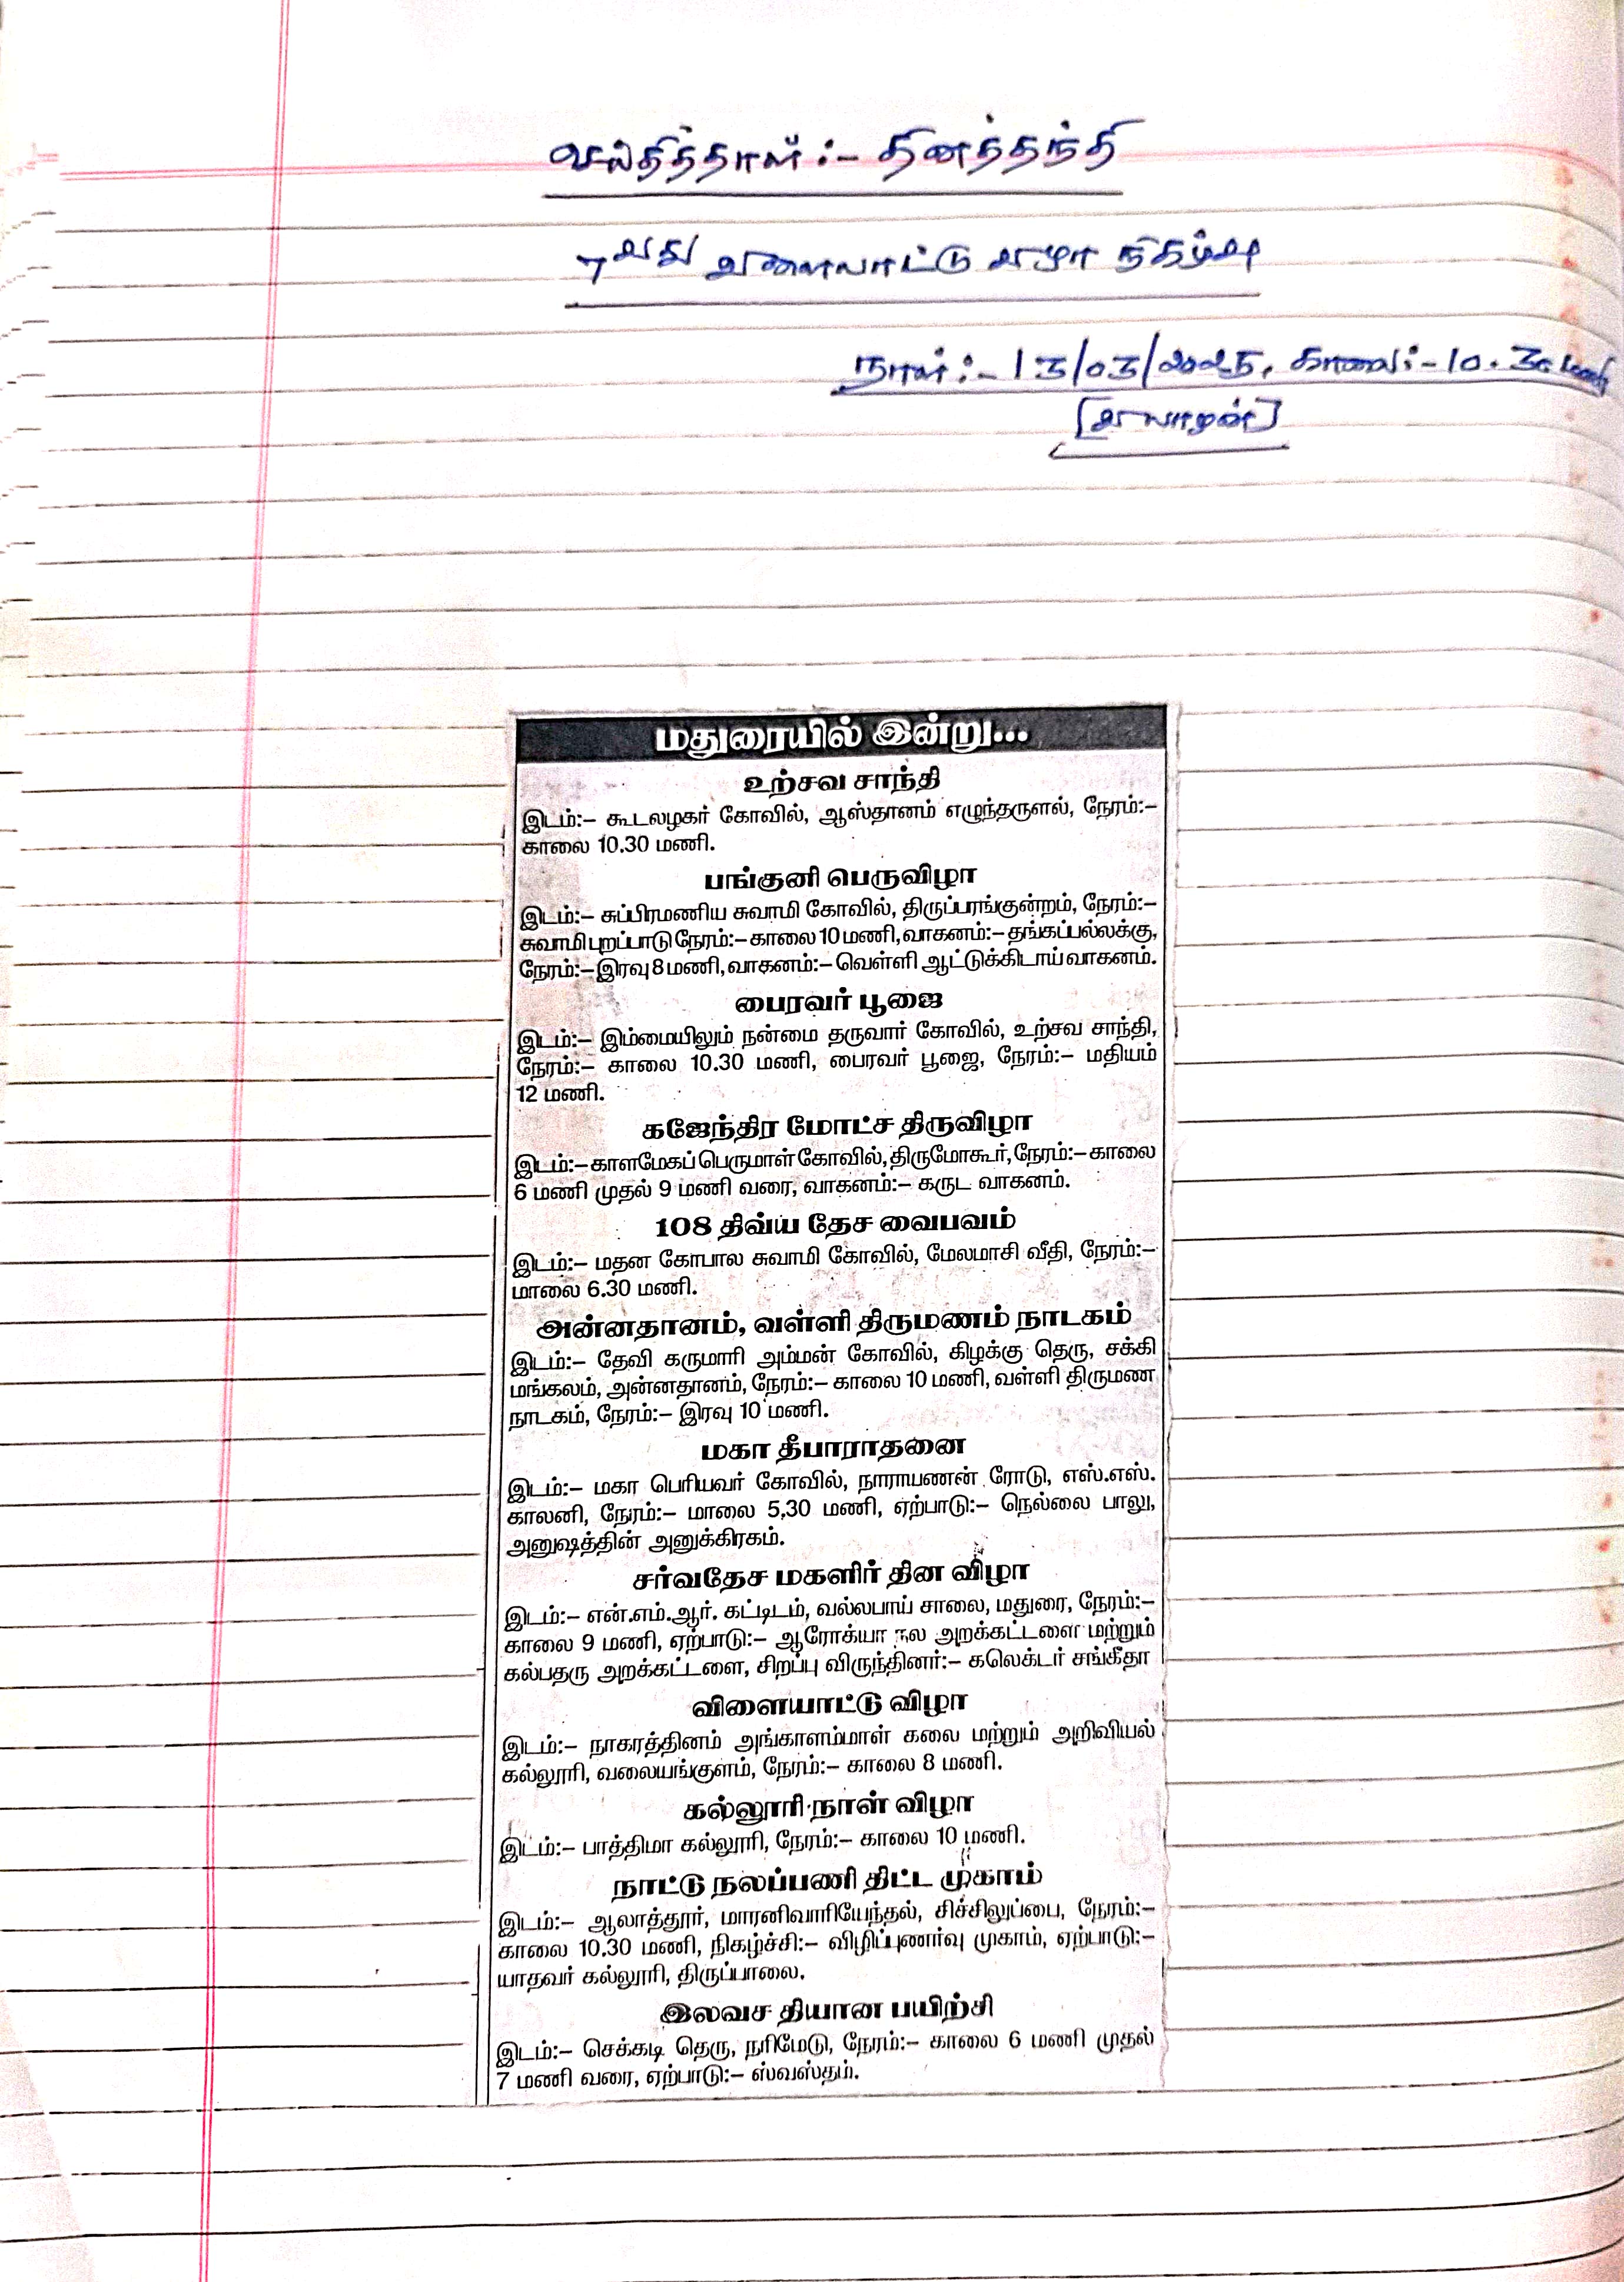 செய்தித்தாள் :- தினத்தந்தி
7வது விளையாட்டு விழா நிகழ்வு
நாள் :- 13/03/2025, காலை :- 10.30 மணி
[வியாழன்]
மதுரையில் இன்று...
உற்சவ சாந்தி
இடம்:– கூடலழகர் கோவில், ஆஸ்தானம் எழுந்தருளல், நேரம்:–
காலை 10.30 மணி.
பங்குனி பெருவிழா
இடம்:– சுப்பிரமணிய சுவாமி கோவில், திருப்பரங்குன்றம், நேரம்:–
சுவாமி புறப்பாடு நேரம்:– காலை 10 மணி, வாகனம்:– தங்கப்பல்லக்கு,
நேரம்:– இரவு 8 மணி, வாகனம்:– வெள்ளி ஆட்டுக்கிடாய் வாகனம்.
பைரவர் பூஜை
இடம்:– இம்மையிலும் நன்மை தருவார் கோவில், உற்சவ சாந்தி,
நேரம்:– காலை 10.30 மணி, பைரவர் பூஜை, நேரம்:– மதியம்
12 மணி.
கஜேந்திர மோட்ச திருவிழா
இடம்:– காளமேகப் பெருமாள் கோவில், திருமோகூர், நேரம்:– காலை
6 மணி முதல் 9 மணி வரை, வாகனம்:– கருட வாகனம்.
108 திவ்ய தேச வைபவம்
இடம்:– மதன கோபால சுவாமி கோவில், மேலமாசி வீதி, நேரம்:–
மாலை 6.30 மணி.
அன்னதானம், வள்ளி திருமணம் நாடகம்
இடம்:– தேவி கருமாரி அம்மன் கோவில், கிழக்கு தெரு, சக்கி
மங்கலம், அன்னதானம், நேரம்:– காலை 10 மணி, வள்ளி திருமண
நாடகம், நேரம்:– இரவு 10 மணி.
மகா தீபாராதனை
இடம்:– மகா பெரியவர் கோவில், நாராயணன் ரோடு, எஸ்.எஸ்.
காலனி, நேரம்:– மாலை 5.30 மணி, ஏற்பாடு:– நெல்லை பாலு,
அனுஷத்தின் அனுக்கிரகம்.
சர்வதேச மகளிர் தின விழா
இடம்:– என்.எம்.ஆர். கட்டிடம், வல்லபாய் சாலை, மதுரை, நேரம்:–
காலை 9 மணி, ஏற்பாடு:– ஆரோக்யா நல அறக்கட்டளை மற்றும்
கல்பதரு அறக்கட்டளை, சிறப்பு விருந்தினர்:– கலெக்டர் சங்கீதா
விளையாட்டு விழா
இடம்:– நாகரத்தினம் அங்காளம்மாள் கலை மற்றும் அறிவியல்
கல்லூரி, வலையங்குளம், நேரம்:– காலை 8 மணி.
கல்லூரி நாள் விழா
இடம்:– பாத்திமா கல்லூரி, நேரம்:– காலை 10 மணி.
நாட்டு நலப்பணி திட்ட முகாம்
இடம்:– ஆலாத்தூர், மாரனிவாரியேந்தல், சிச்சிலுப்பை, நேரம்:–
காலை 10.30 மணி, நிகழ்ச்சி:– விழிப்புணர்வு முகாம், ஏற்பாடு:–
யாதவர் கல்லூரி, திருப்பாலை.
இலவச தியான பயிற்சி
இடம்:– செக்கடி தெரு, நரிமேடு, நேரம்:– காலை 6 மணி முதல்
7 மணி வரை, ஏற்பாடு:– ஸ்வஸ்தம்.